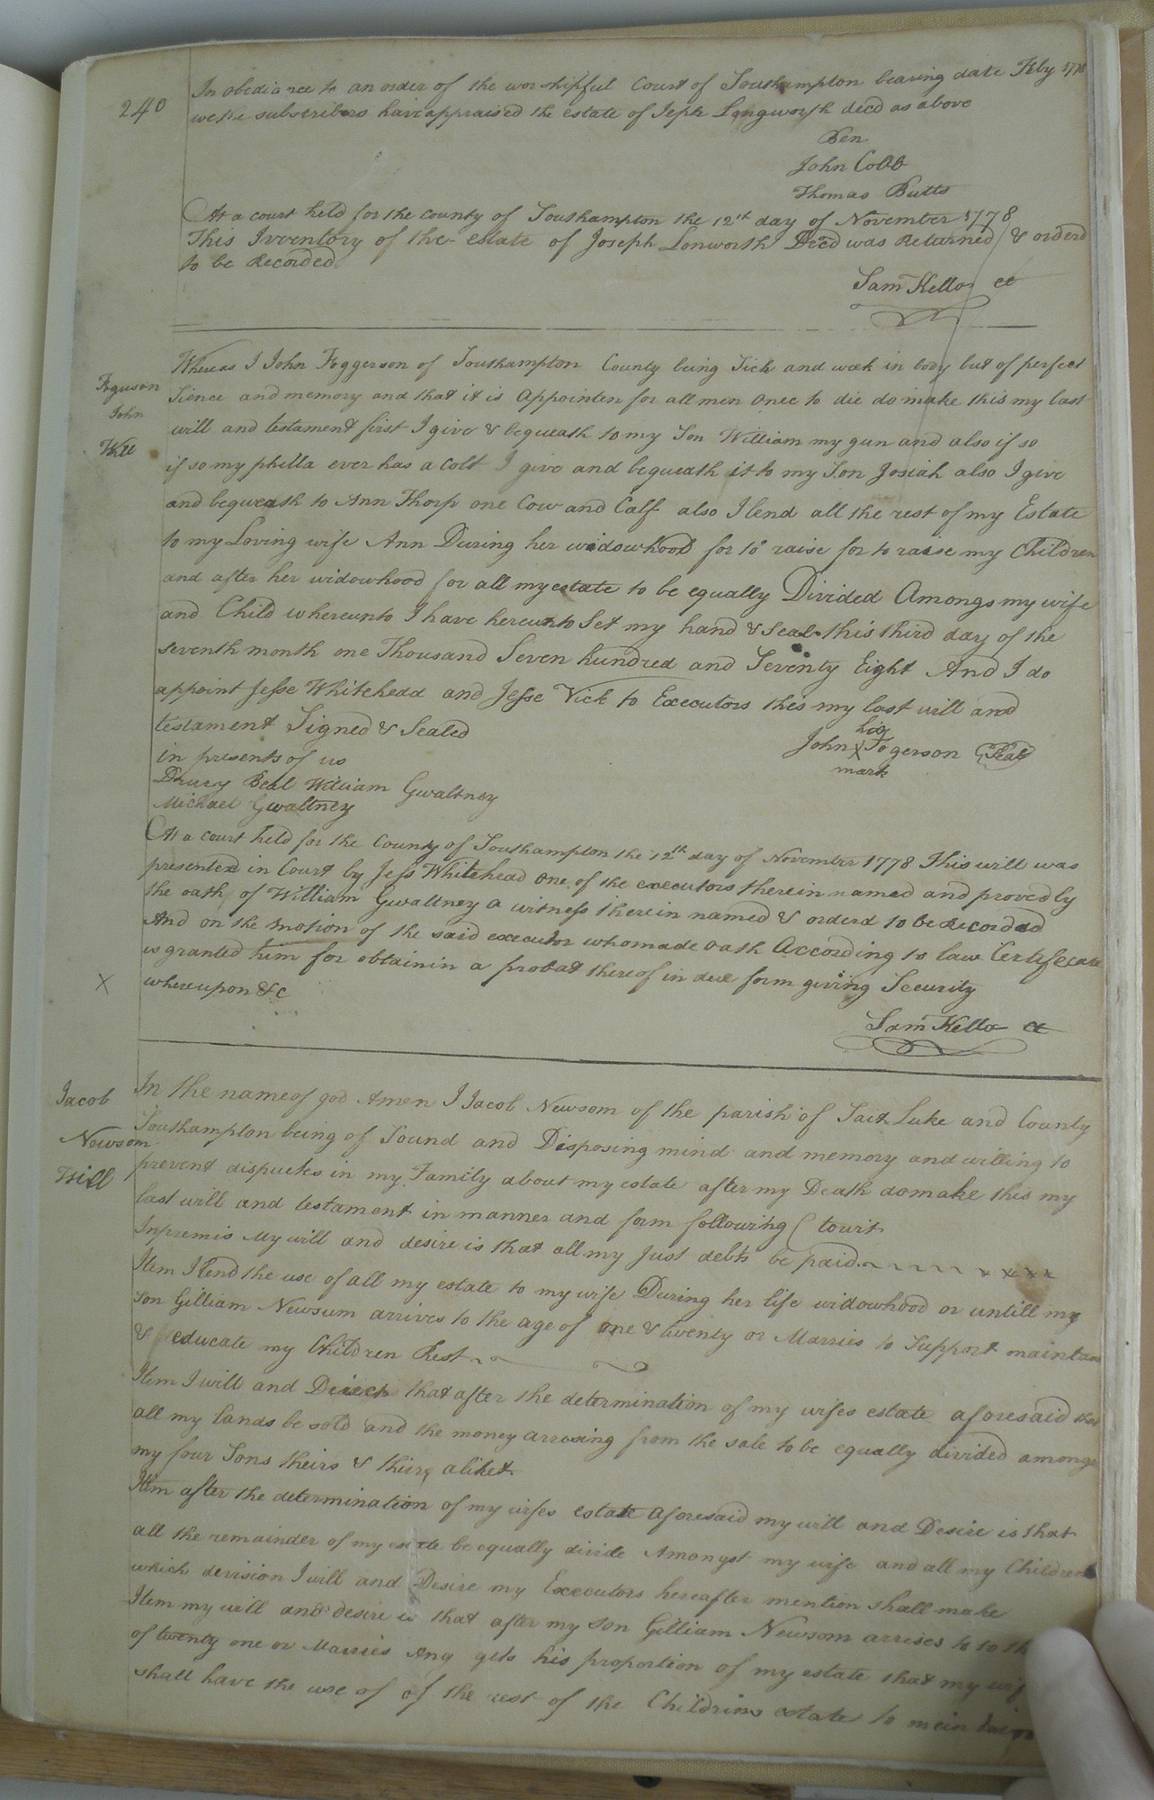 240
In obediance to an order of the worshipful Court of Southampton bearing date Feby 1778
we the subscribers have appraised the estate of Jeph Longworth decd as above
Ben
John Cobb
Thomas Butts
At a court held for the county of Southampton the 12th day of November 1778
This Inventory of the estate of Joseph Lonworth Decd was Returned & orderd
to be Recorded
Sam Kello ct
Feguson
John
Will
Whereas I John Foggerson of Southampton County being Sick and weak in body but of perfect
Sience and memory and that it is Appointen for all men onec to die do make this my last
will and testament first I give & bequeath to my Son William my gun and also if so
if so my phila ever has a colt I give and bequeath it to my Son Josiah also I give
and bequeath to Ann Thorp one Cow and Calf also I lend all the rest of my Estate
to my Loving wife Ann During her widowhood for to raise for to raise my Children
and after her widowhood for all my estate to be equally Divided Amongs my wife
and Child whereunto I have hereunto Set my hand & Seal this third day of the
seventh month one Thousand Seven hundred and Seventy Eight And I do
appoint Jesse Whitehead and Jesse Vick to Executors this my last will and
testament Signed & Sealed
in presents of us
his
John X Fogerson Seal
mark
Drury Beal William Gwaltney
Michael Gwaltney
At a court held for the County of Southampton the 12th day of November 1778 This will was
presented in Court by Jess Whitehead one of the executors therein named and proved by
the oath of William Gwaltney a witness therein named & orderd to be Recorded
And on the motion of the said executor who made oath According to law Certifecate
is granted him for obtainin a probat thereof in due form giving Security
X whereupon &c
Sam Kello ct
Jacob
Newsom
Will
In the name of god Amen I Jacob Newsom of the parish of Saet Luke and County
Southampton being of Sound and Disposing mind and memory and willing to
prevent dispuets in my Family about my estate after my Death do make this my
last will and testament in manner and form following (towit
Inpremis My will and desire is that all my Just debts be paid
Item I lend the use of all my estate to my wife During her life widowhood or untill my
son Gilliam Newsum arrives to the age of one & twenty or Marries to Support maintan
& educate my Children Rest
Item I will and Direct that after the determination of my wifes estate aforesaid that
all my lands be sold and the money arrising from the sale to be equally divided amongs
my four Sons theirs & thirs alike
Item after the determination of my wifes estate aforesaid my will and Desire is that
all the remainder of my estate be equally divide Amongst my wife and all my Children
which devision I will and Desire my Executors hereafter mention shall make
Item my will and desire is that after my son Gilliam Newsom arrises to to th
of twenty one or Marries Any gets his proportion of my estate that my wif
shall have the use of of the rest of the Childrins estate to mein